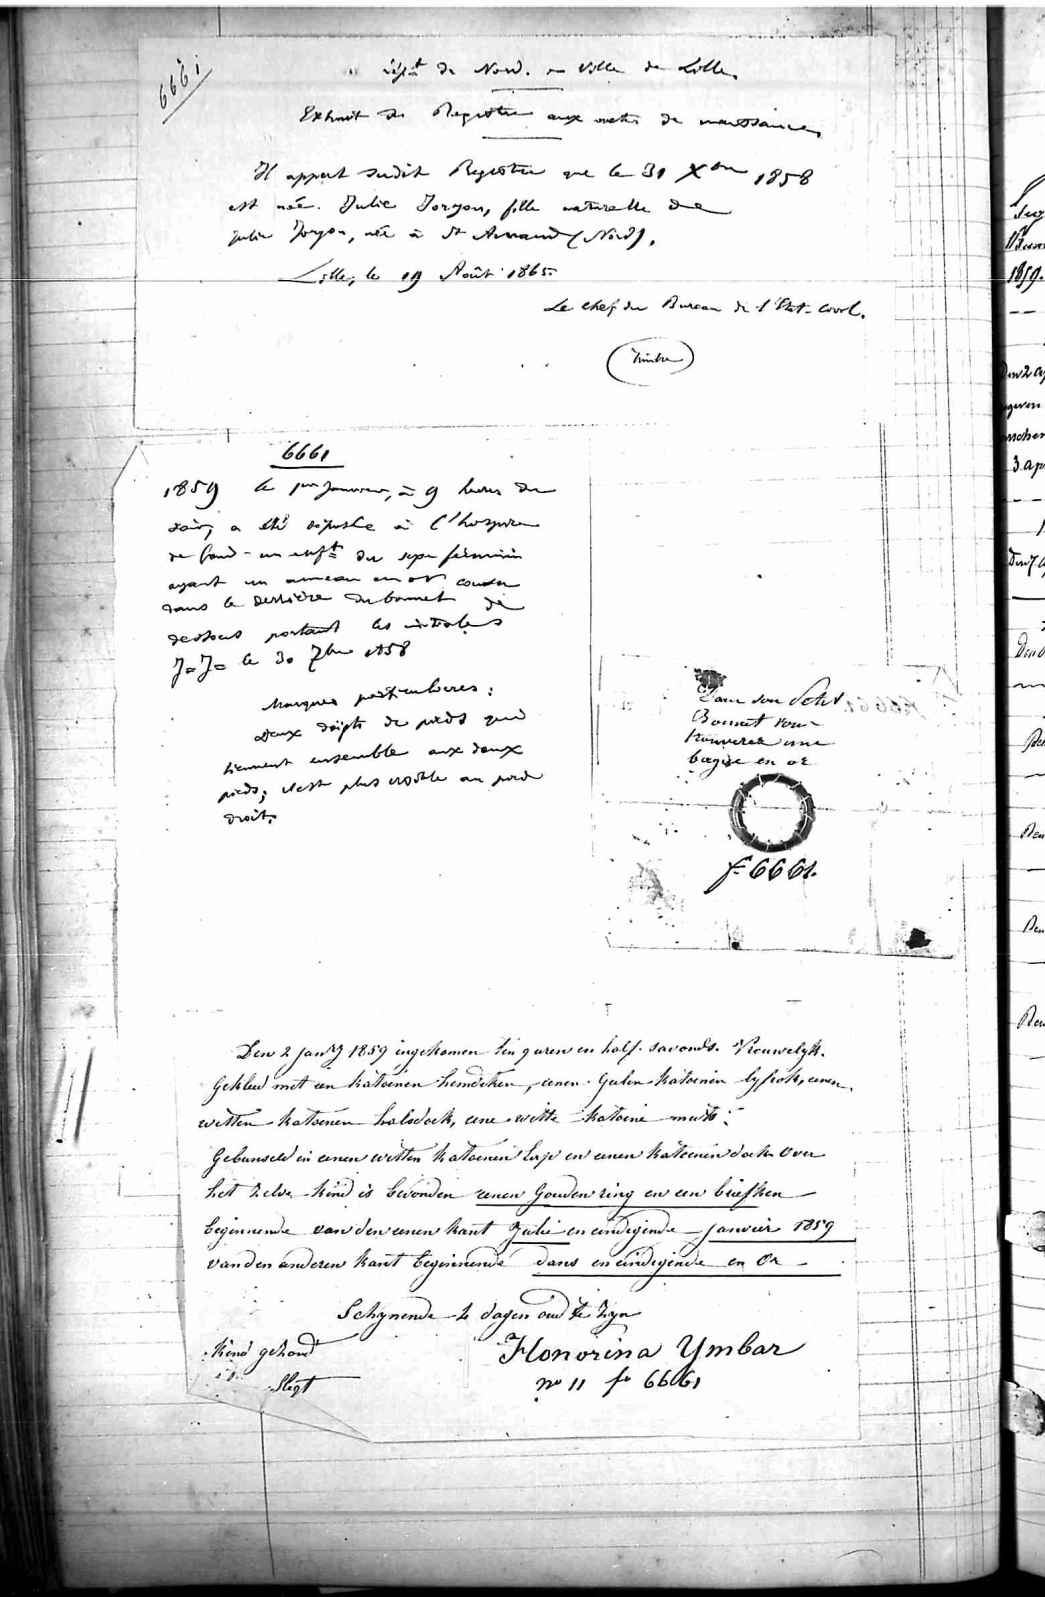 6661
Dépt du Nord. — Ville de Lille.
Extrait du Registre aux actes de naissance,
Il appert dudit Registre que le 31 Xbre 1858
est née. Julie Joryou, fille naturelle de
Julie Joryou, née à St Amand (Nord).
Lille, le 19 Août 1865.
Le chef du Bureau de l'Etat-Civil.
(Timbre)
6661
1859 le 1er Janvier, à 9 heures du
soir, a été déposée à l'hospice
de Gand - un enft du sexe féminin
ayant un anneau en or cousu
dans le derrière du bonnet de
dessous portant les initiales
J=J= le 30 1858
Marques particulieres:
deux doigts de pieds qui
tiennent ensemble aux deux
pieds; c'est plus visible au pied
droit.
Dans son Petit
Bonnet vous
trouverez une
bague en or
fo 6661.
Den 2 janry 1859 ingekomen tien uren en half savonds. Vrouwelyk.
Gekleed met een katoenen hemdeken, eenen Gelen katoenen lyfrok, eenen
witten katoenen halsdoek, eene witte katoene muts:
Gebunseld in eenen witten katoenen lap en eenen katoenen doek Over
het zelve kind is bevonden eenen Gouden ring en een briefken
beginnende van den eenen kant Julie en eindigende Janvier 1859
van den anderen kant beginnende dans en eindigende en Or
Schynende 2 dagen oud te zyn
Kind gezond
Slegt
Honorina Ymbar
no 11 fo 6661
1859.